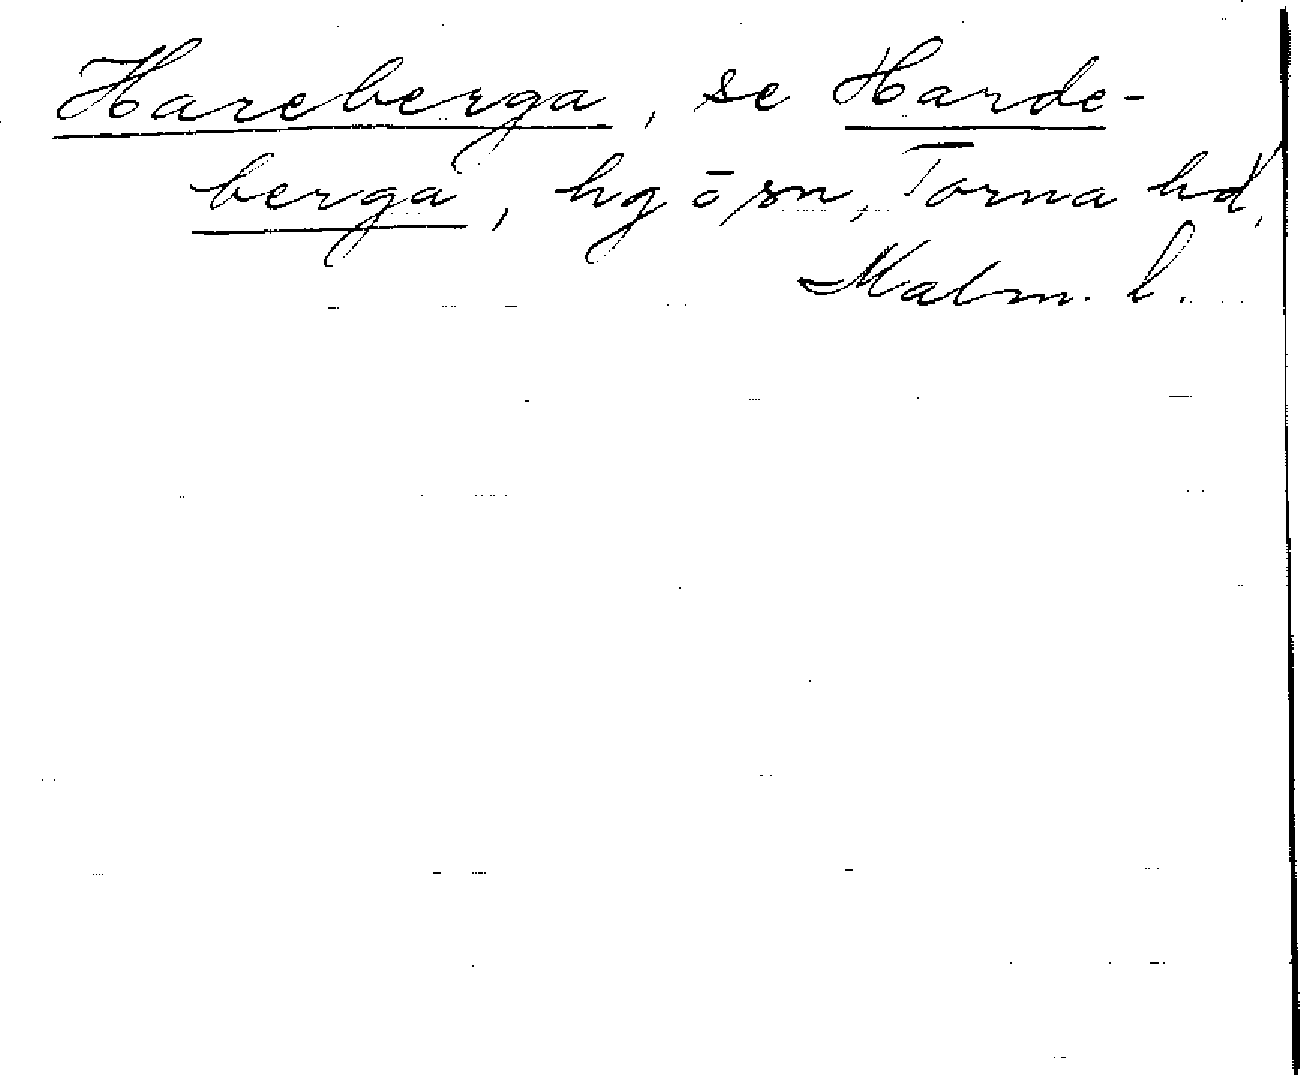 Hareberga, se Harde-
berga, hg ō sn, Torna hd,
Malm. l.